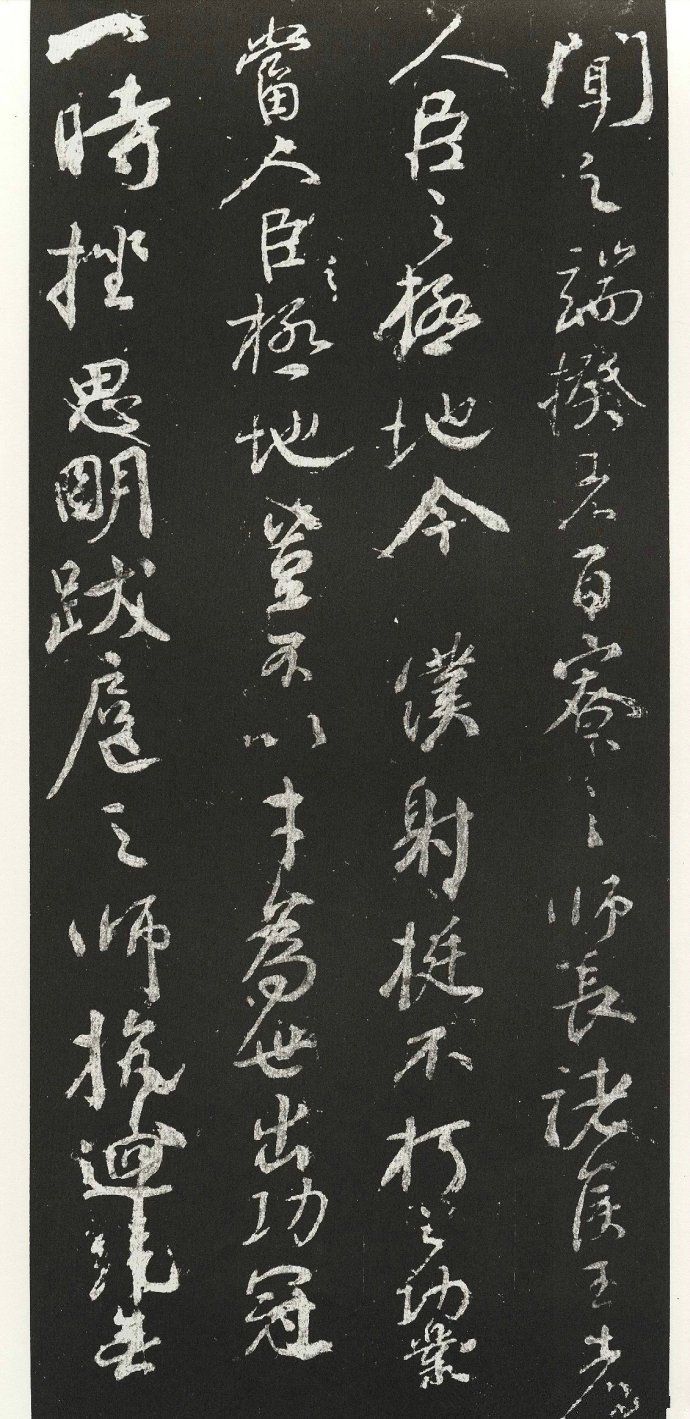 聞之端揆者百寮之師長諸侯王者
人臣之極地今僕射挺不朽之功業
當人臣極之地豈不以才為世出功冠
一時挫思明跋扈之師抗迴紇無